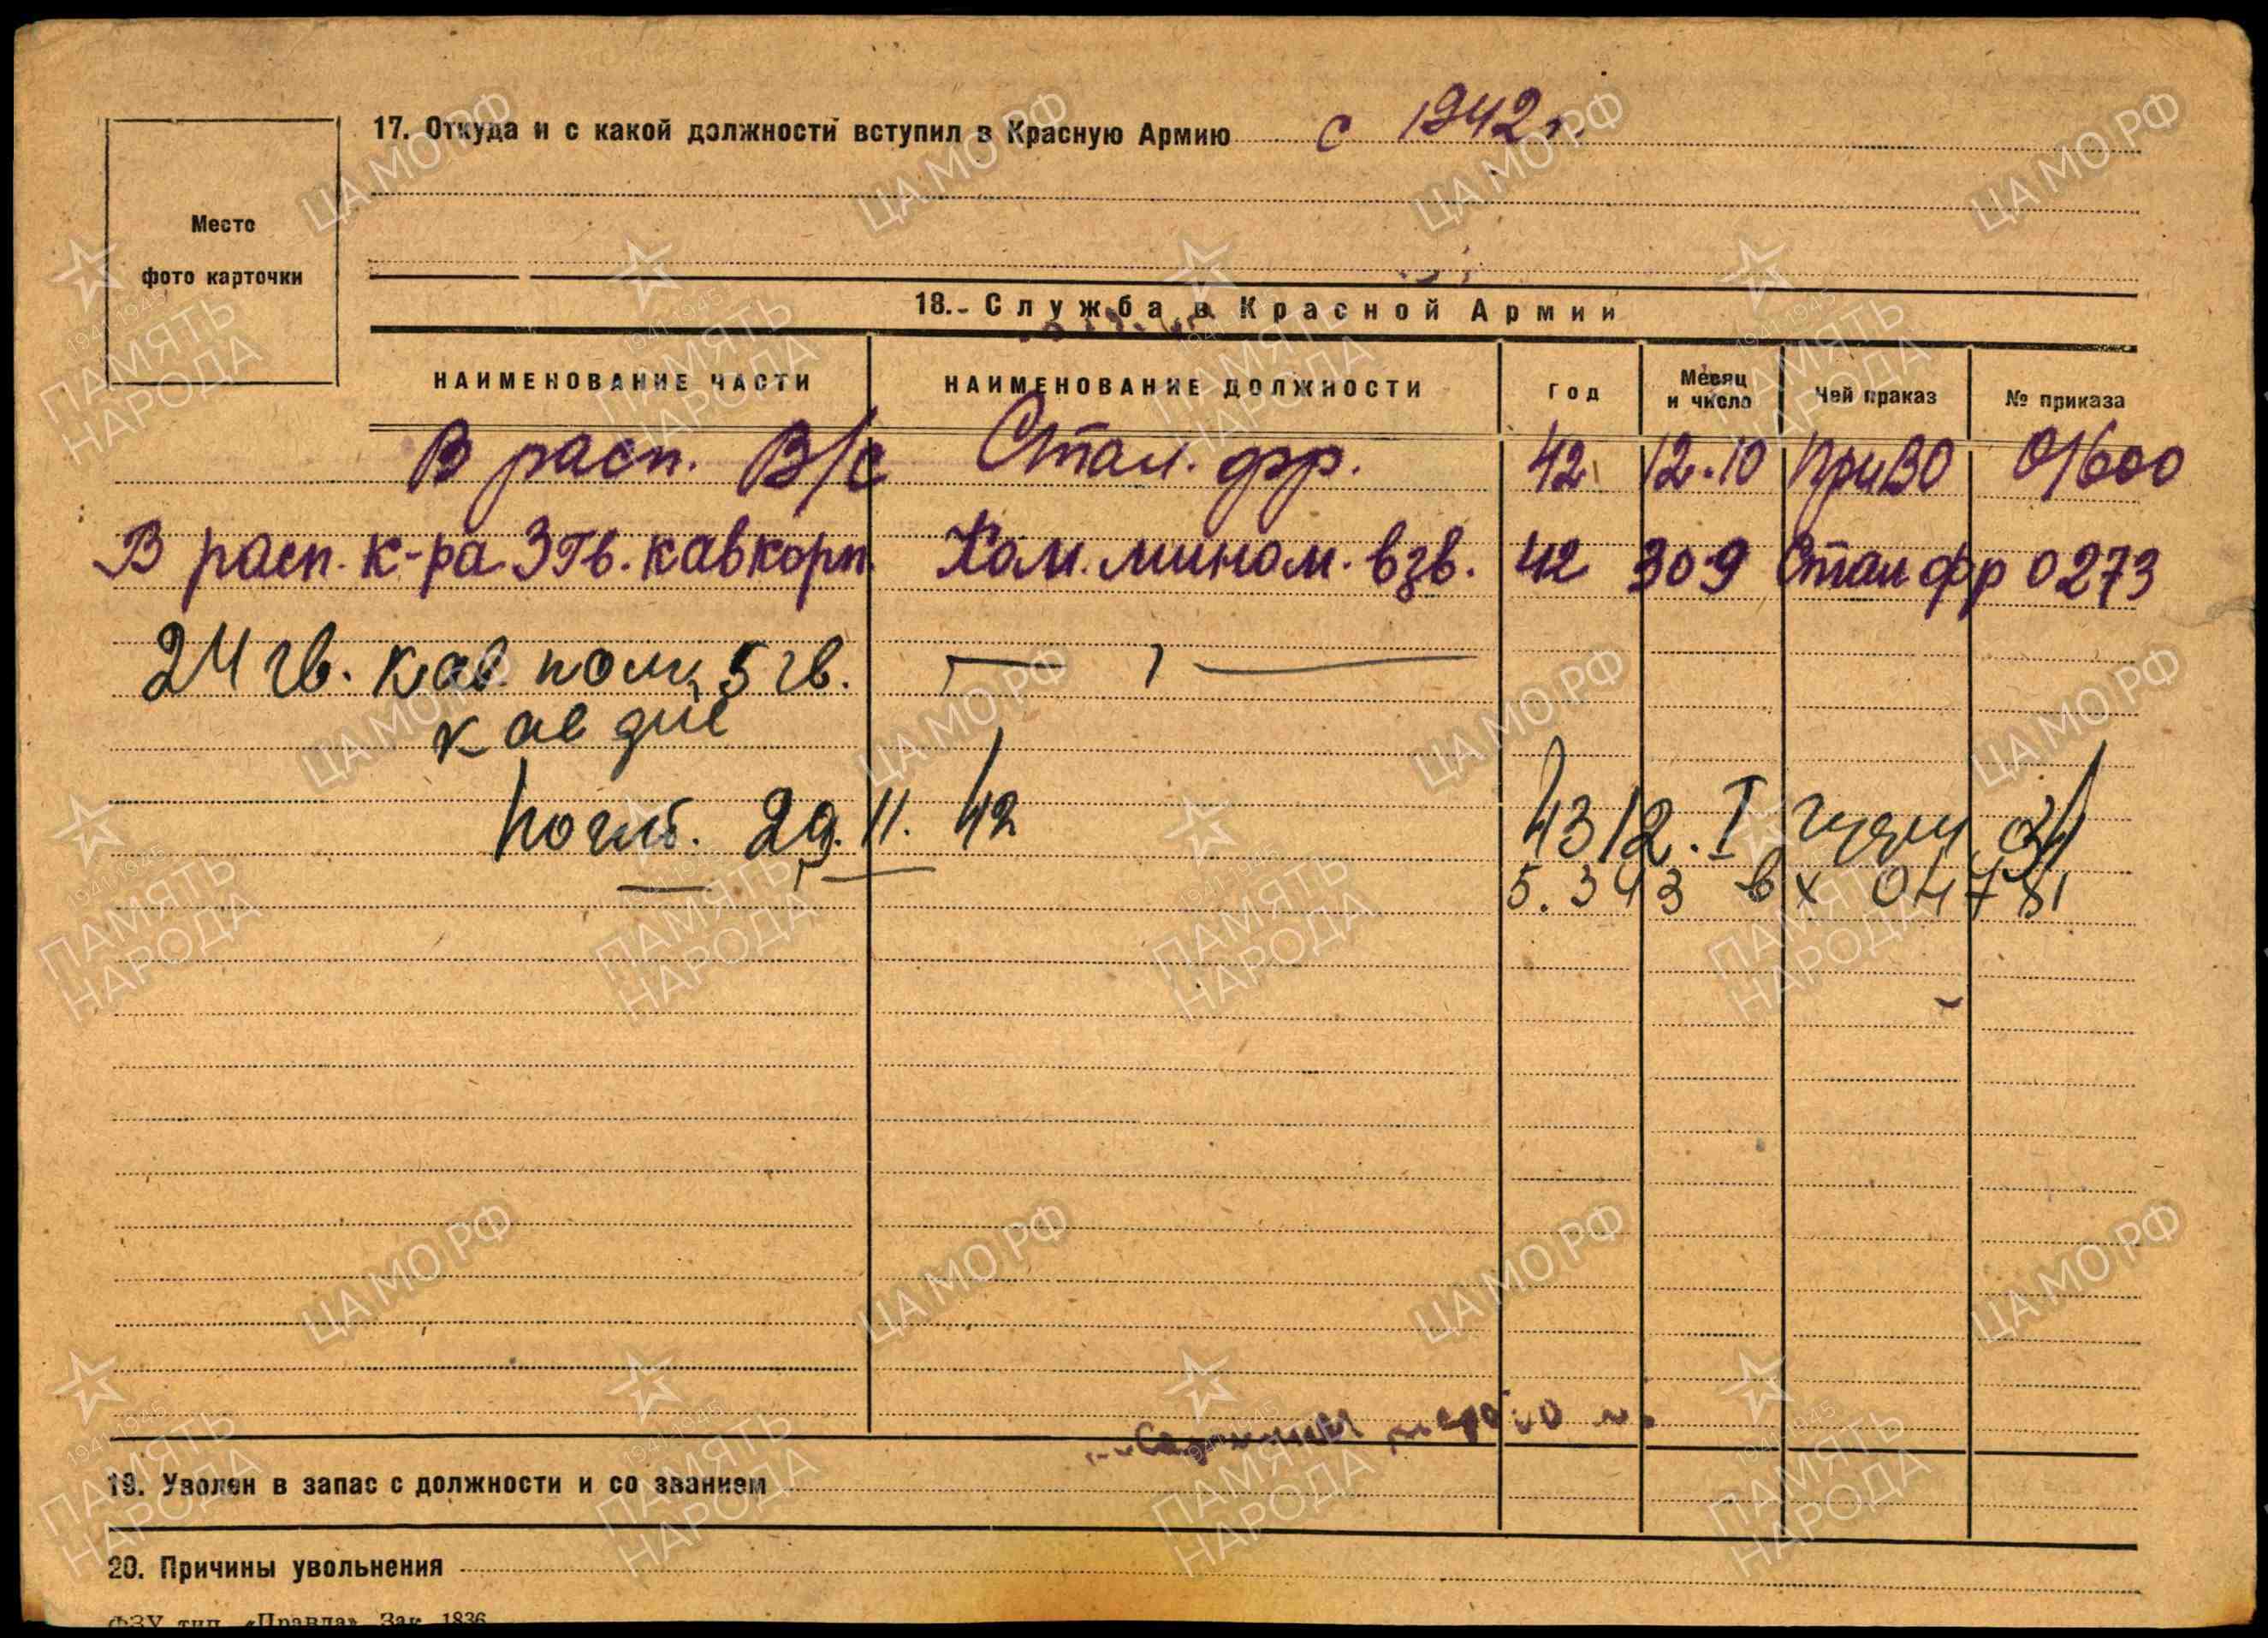 17. Откуда и с какой должности вступил в Красную Армию с 1942 г.
Место
фото карточки
18. - Служба в Красной Армии
НАИМЕНОВАНИЕ ЧАСТИ НАИМЕНОВАНИЕ ДОЛЖНОСТИ Год Месяц и число Чей приказ № приказа
В расп. В/с Стал. фр. 42 12.10 ПриВО 01600
В расп. к-ра 3 Гв. кавкорп. Ком. мином. взв. 42 30 9 Стал фр 0273
24 гв. кав. полк 5 гв. — " —
кав див
погиб. 29. 11. 42 43 12. I
5. 3 43 вх 04781
19. Уволен в запас с должности и со званием
20. Причины увольнения
ФЗУ тип. «Правда» Зак. 1836
ЦАМО РФ
1941-1945
ПАМЯТЬ
НАРОДА